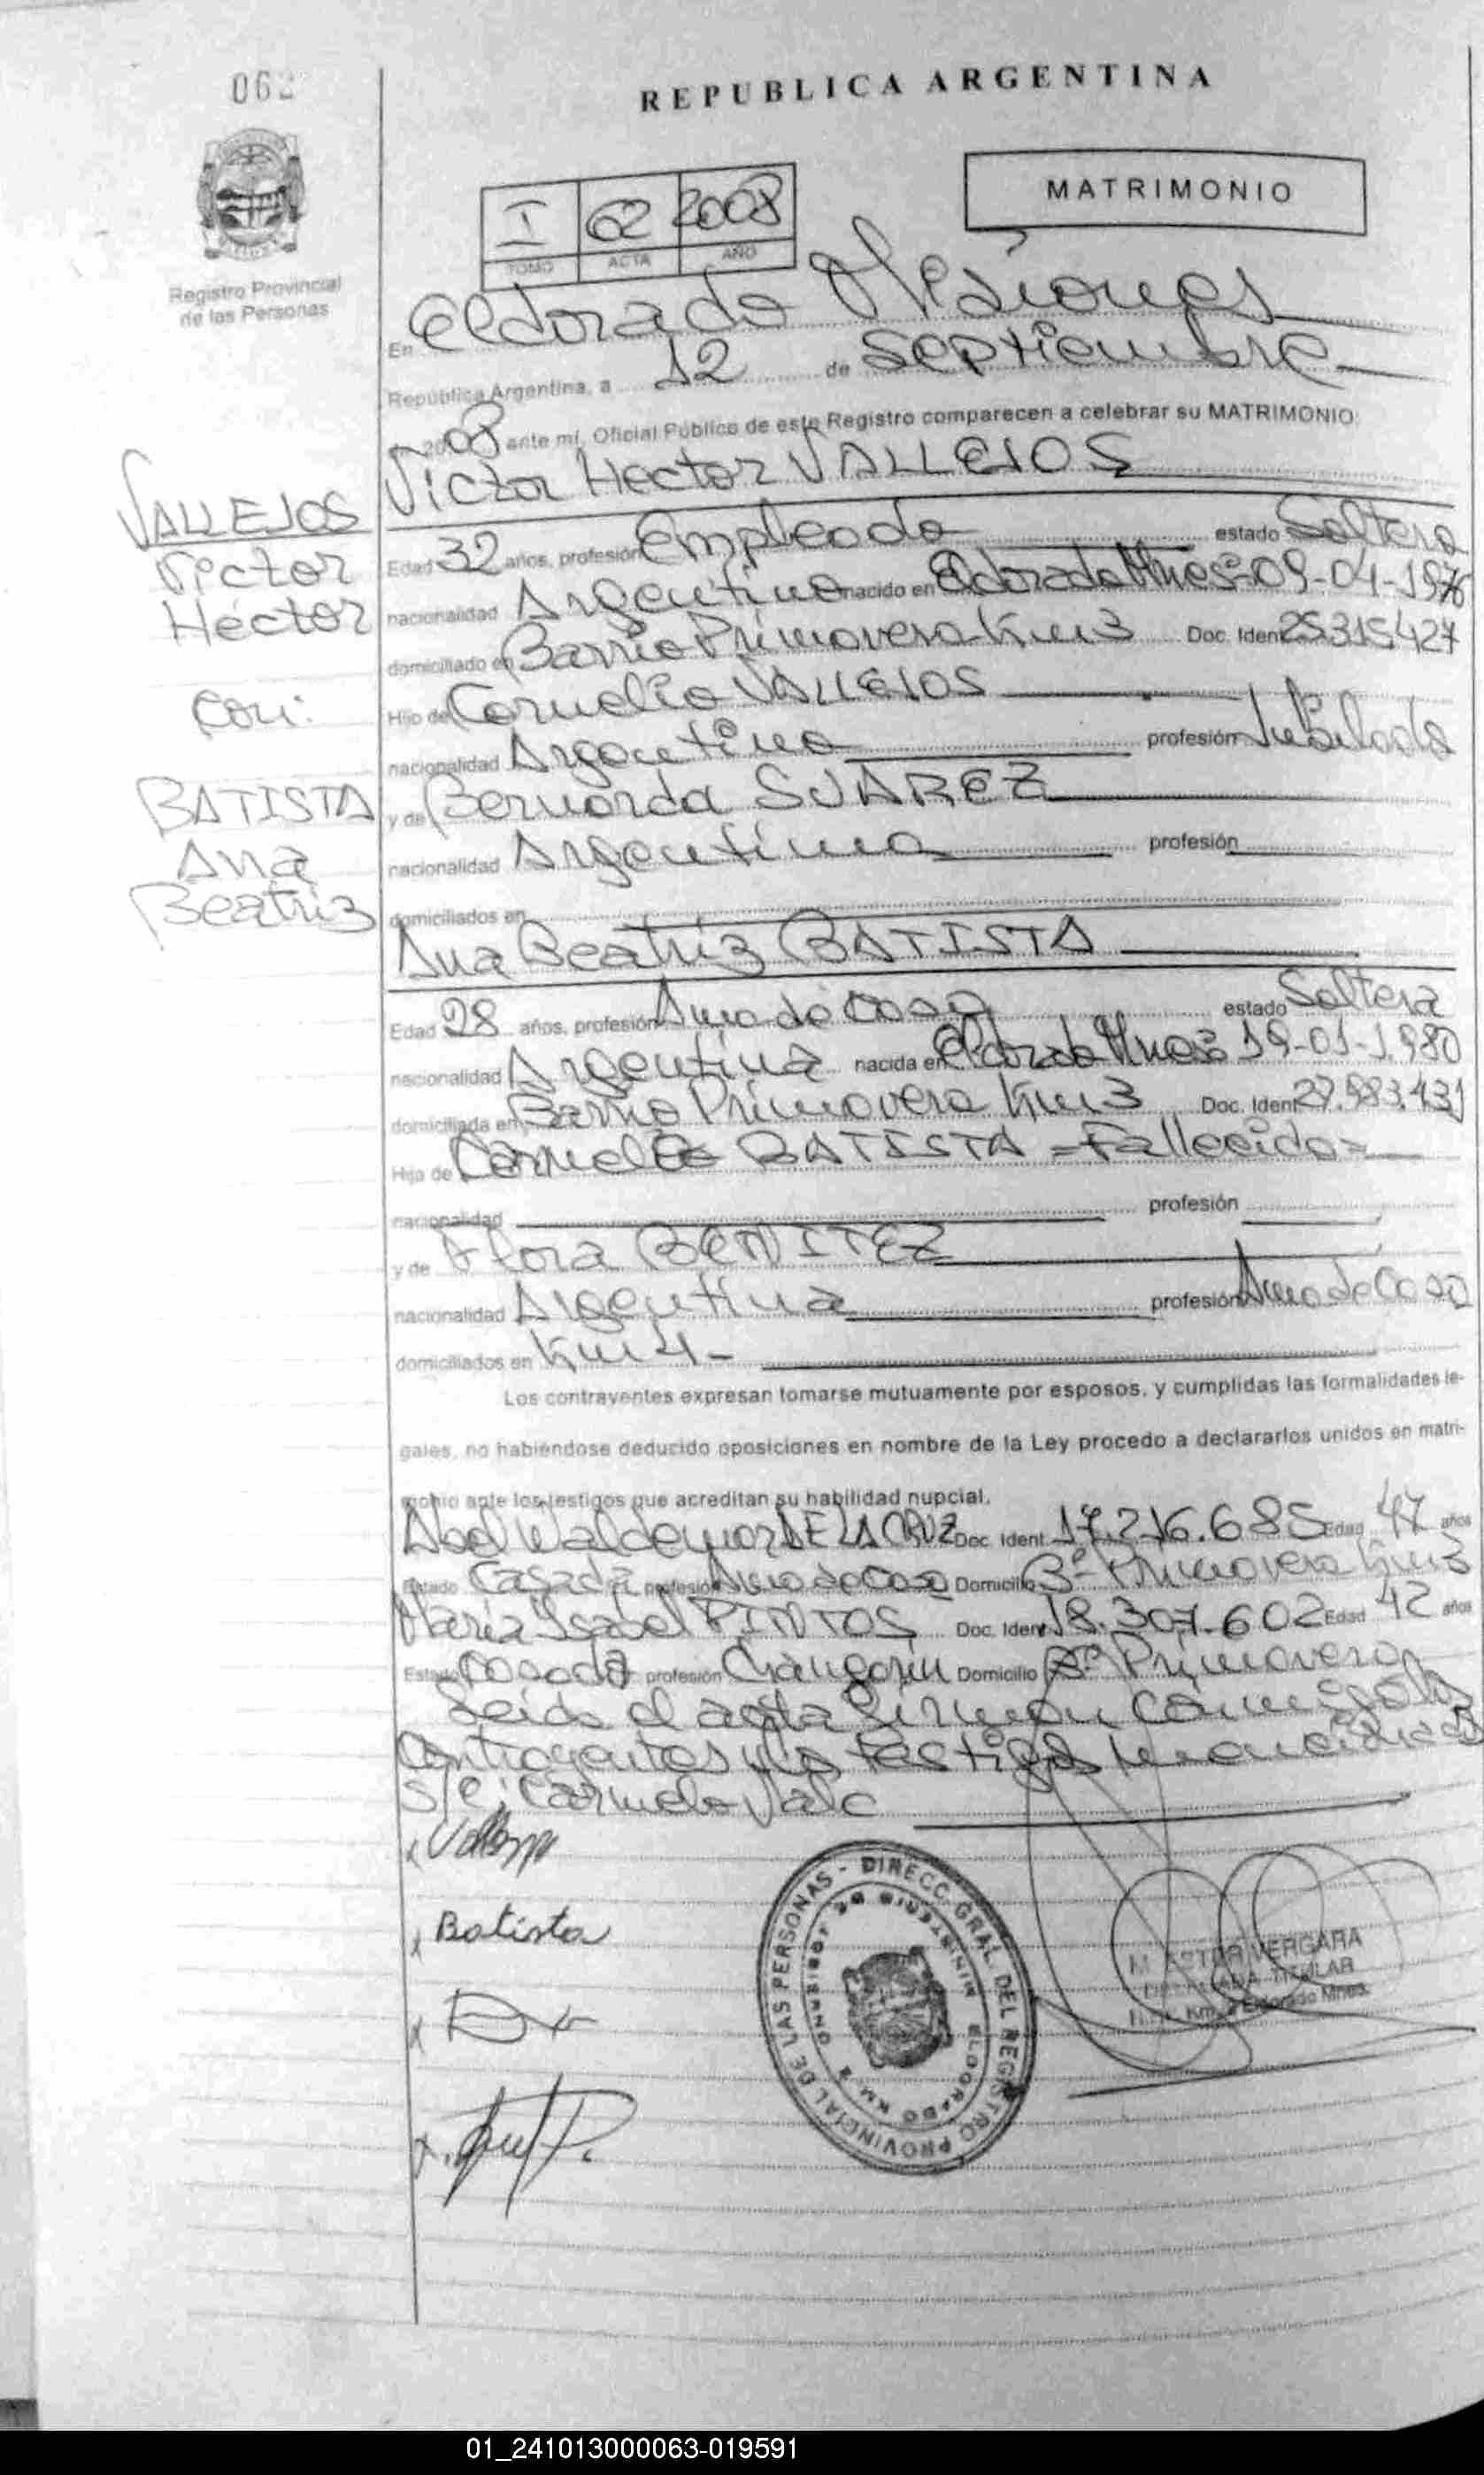 062
REPUBLICA ARGENTINA
I 62 2008
TOMO ACTA AÑO
MATRIMONIO
Registro Provincial
de las Personas
En Eldorado Misiones
República Argentina, a 12 de Septiembre
2008 ante mí, Oficial Público de este Registro comparecen a celebrar su MATRIMONIO:
Victor Hector VALLEJOS
VALLEJOS
Victor
Héctor
con:
BATISTA
Ana
Beatriz
Edad 32 años, profesión Empleado estado Soltero
nacionalidad Argentino nacido en Eldorado Mnes 09-04-1976
domiciliado en Barrio Primavera Km 3 Doc. Ident 25.315.427
Hijo de Cornelio VALLEJOS
nacionalidad Argentino profesión Jubilado
y de Bernarda SUAREZ
nacionalidad Argentina profesión
domiciliados en
Ana Beatriz BATISTA
Edad 28 años, profesión Ama de Casa estado Soltera
nacionalidad Argentina nacida en Eldorado Mnes 19-01-1.980
domiciliada en Barrio Primavera Km 3 Doc. Ident 27.983.431
Hija de BATISTA =Fallecido=
nacionalidad profesión
y de Flora BENITEZ
nacionalidad Argentina profesión Ama de Casa
domiciliados en Km 4-
Los contrayentes expresan tomarse mutuamente por esposos, y cumplidas las formalidades le-
gales, no habiéndose deducido oposiciones en nombre de la Ley procedo a declararlos unidos en matri-
monio ante los testigos que acreditan su habilidad nupcial.
Abel Waldemar DE LA CRUZ Doc. Ident. 17.216.685 Edad 47 años
Estado Casada profesión Ama de Casa Domicilio Bº Primavera Km 3
María Isabel PINTOS Doc. Ident 18.307.602 Edad 42 años
Estado Casada profesión Domicilio Bº Primavera
Leida el acta firman conmigo los
contrayentes y los testigos mencionados
S/C: Carmelo Vale
x
x Batista
x
x
DIRECC. GRAL. DEL REGISTRO PROVINCIAL DE LAS PERSONAS -
MINISTERIO DE GOBIERNO
ELDORADO KM
VERGARA
TITULAR
Eldorado Mnes.
01_241013000063-019591